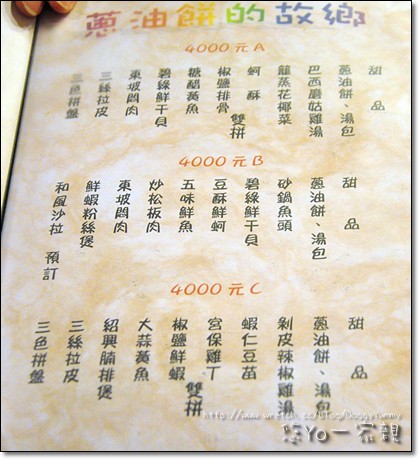 蔥油餅的故鄉
4000元A
三色拼盤
三絲拉皮
東坡悶肉
碧綠鮮干貝
糖醋黃魚
椒鹽排骨 雙拼
蚵酥
龍蒸花椰菜
巴西蘑菇雞湯
蔥油餅、湯包
甜品
4000元B
和風沙拉 預訂
鮮蝦粉絲煲
東坡悶肉
炒松板肉
五味鮮魚
豆酥鮮蚵
碧綠鮮干貝
砂鍋魚頭
蔥油餅、湯包
甜品
4000元C
三色拼盤
三絲拉皮
紹興腩排煲
大蒜黃魚
椒鹽鮮蝦 雙拼
宮保雞丁
蝦仁豆苗
剝皮辣椒雞湯
蔥油餅、湯包
甜品
悠Yo一家親